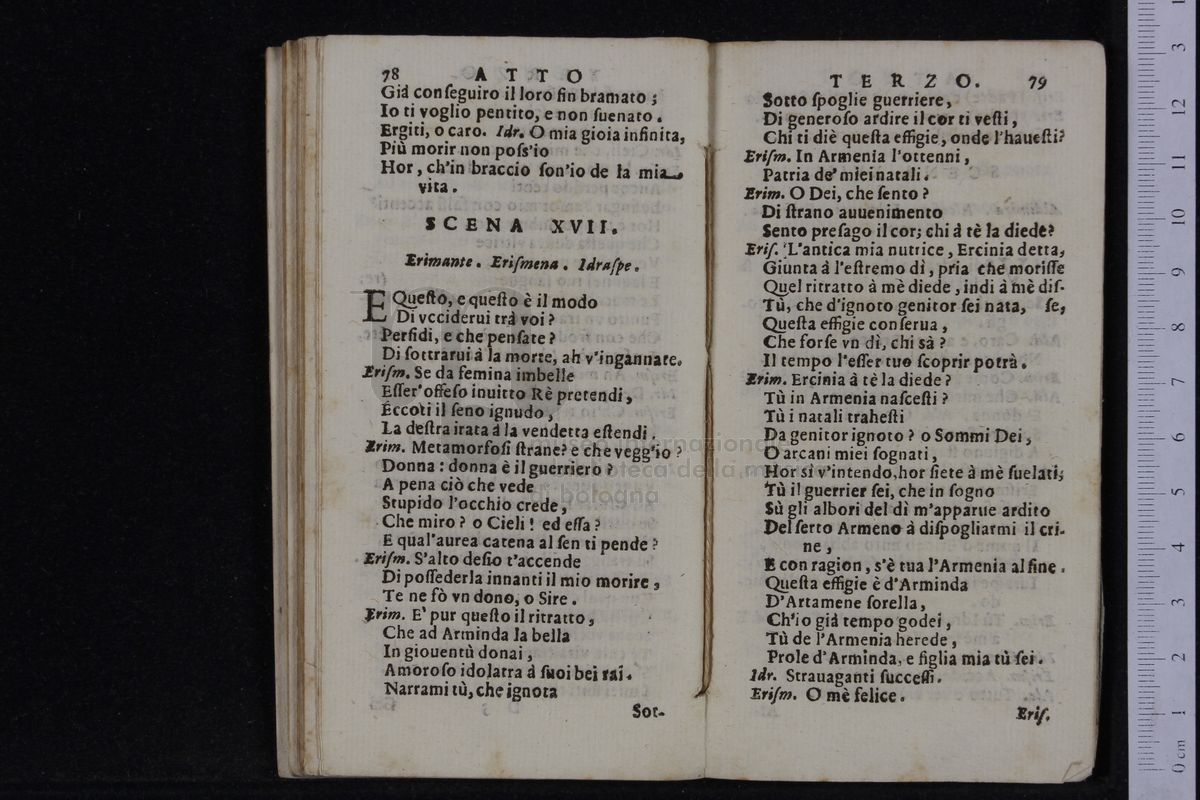 78 ATTO
Già conſeguiro il loro fin bramato ;
Io ti voglio pentito, e non ſuenato .
Ergiti, o caro. Idr. O mia gioia infinita,
Più morir non poſs'io
Hor, ch'in braccio ſon'io de la mia
vita .
SCENA XVII.
Erimante . Eriſmena . Idraſpe .
E Queſto, e queſto è il modo
Di vcciderui trà voi ?
Perfidi, e che penſate ?
Di ſottrarui à la morte, ah v'ingannate.
Eriſm. Se da femina imbelle
Eſſer'offeſo inuitto Rè pretendi,
Eccoti il ſeno ignudo,
La deſtra irata à la vendetta eſtendi.
Erim. Metamorfoſi ſtrane? e che vegg'io ?
Donna : donna è il guerriero ?
A pena ciò che vede
Stupido l'occhio crede,
Che miro ? o Cieli ! ed eſſa ?
E qual'aurea catena al ſen ti pende ?
Eriſm. S'alto deſio t'accende
Di poſſederla innanti il mio morire ,
Te ne fò vn dono, o Sire .
Erim. E' pur queſto il ritratto,
Che ad Arminda la bella
In giouentù donai,
Amoroſo idolatra à ſuoi bei rai.
Narrami tù, che ignota
Sot-
TERZO. 79
Sotto ſpoglie guerriere,
Di generoſo ardire il cor ti veſti,
Chi ti diè queſta effigie, onde l'haueſti?
Eriſm. In Armenia l'ottenni,
Patria de' miei natali.
Erim. O Dei, che ſento ?
Di ſtrano auuenimento
Sento preſago il cor; chi à tè la diede?
Eriſ. L'antica mia nutrice, Ercinia detta,
Giunta à l'eſtremo dì, pria che moriſſe
Quel ritratto à mè diede, indi à mè diſ-
Tù, che d'ignoto genitor ſei nata, ſe,
Queſta effigie conſerua,
Che forſe vn dì, chi sà ?
Il tempo l'eſſer tuo ſcoprir potrà.
Erim. Ercinia à tè la diede ?
Tù in Armenia naſceſti ?
Tù i natali traheſti
Da genitor ignoto ? o Sommi Dei,
O arcani miei ſognati,
Hor sì v'intendo, hor ſiete à mè ſuelati;
Tù il guerrier ſei, che in ſogno
Sù gli albori del dì m'apparue ardito
Del ſerto Armeno à diſpogliarmi il cri-
ne,
E con ragion, s'è tua l'Armenia al fine .
Queſta effigie è d'Arminda
D'Artamene ſorella,
Ch'io già tempo godei,
Tù de l'Armenia herede,
Prole d'Arminda, e figlia mia tù ſei.
Idr. Strauaganti ſucceſſi.
Eriſm. O mè felice.
Eriſ.
museo internazionale
biblioteca della musica
di bologna